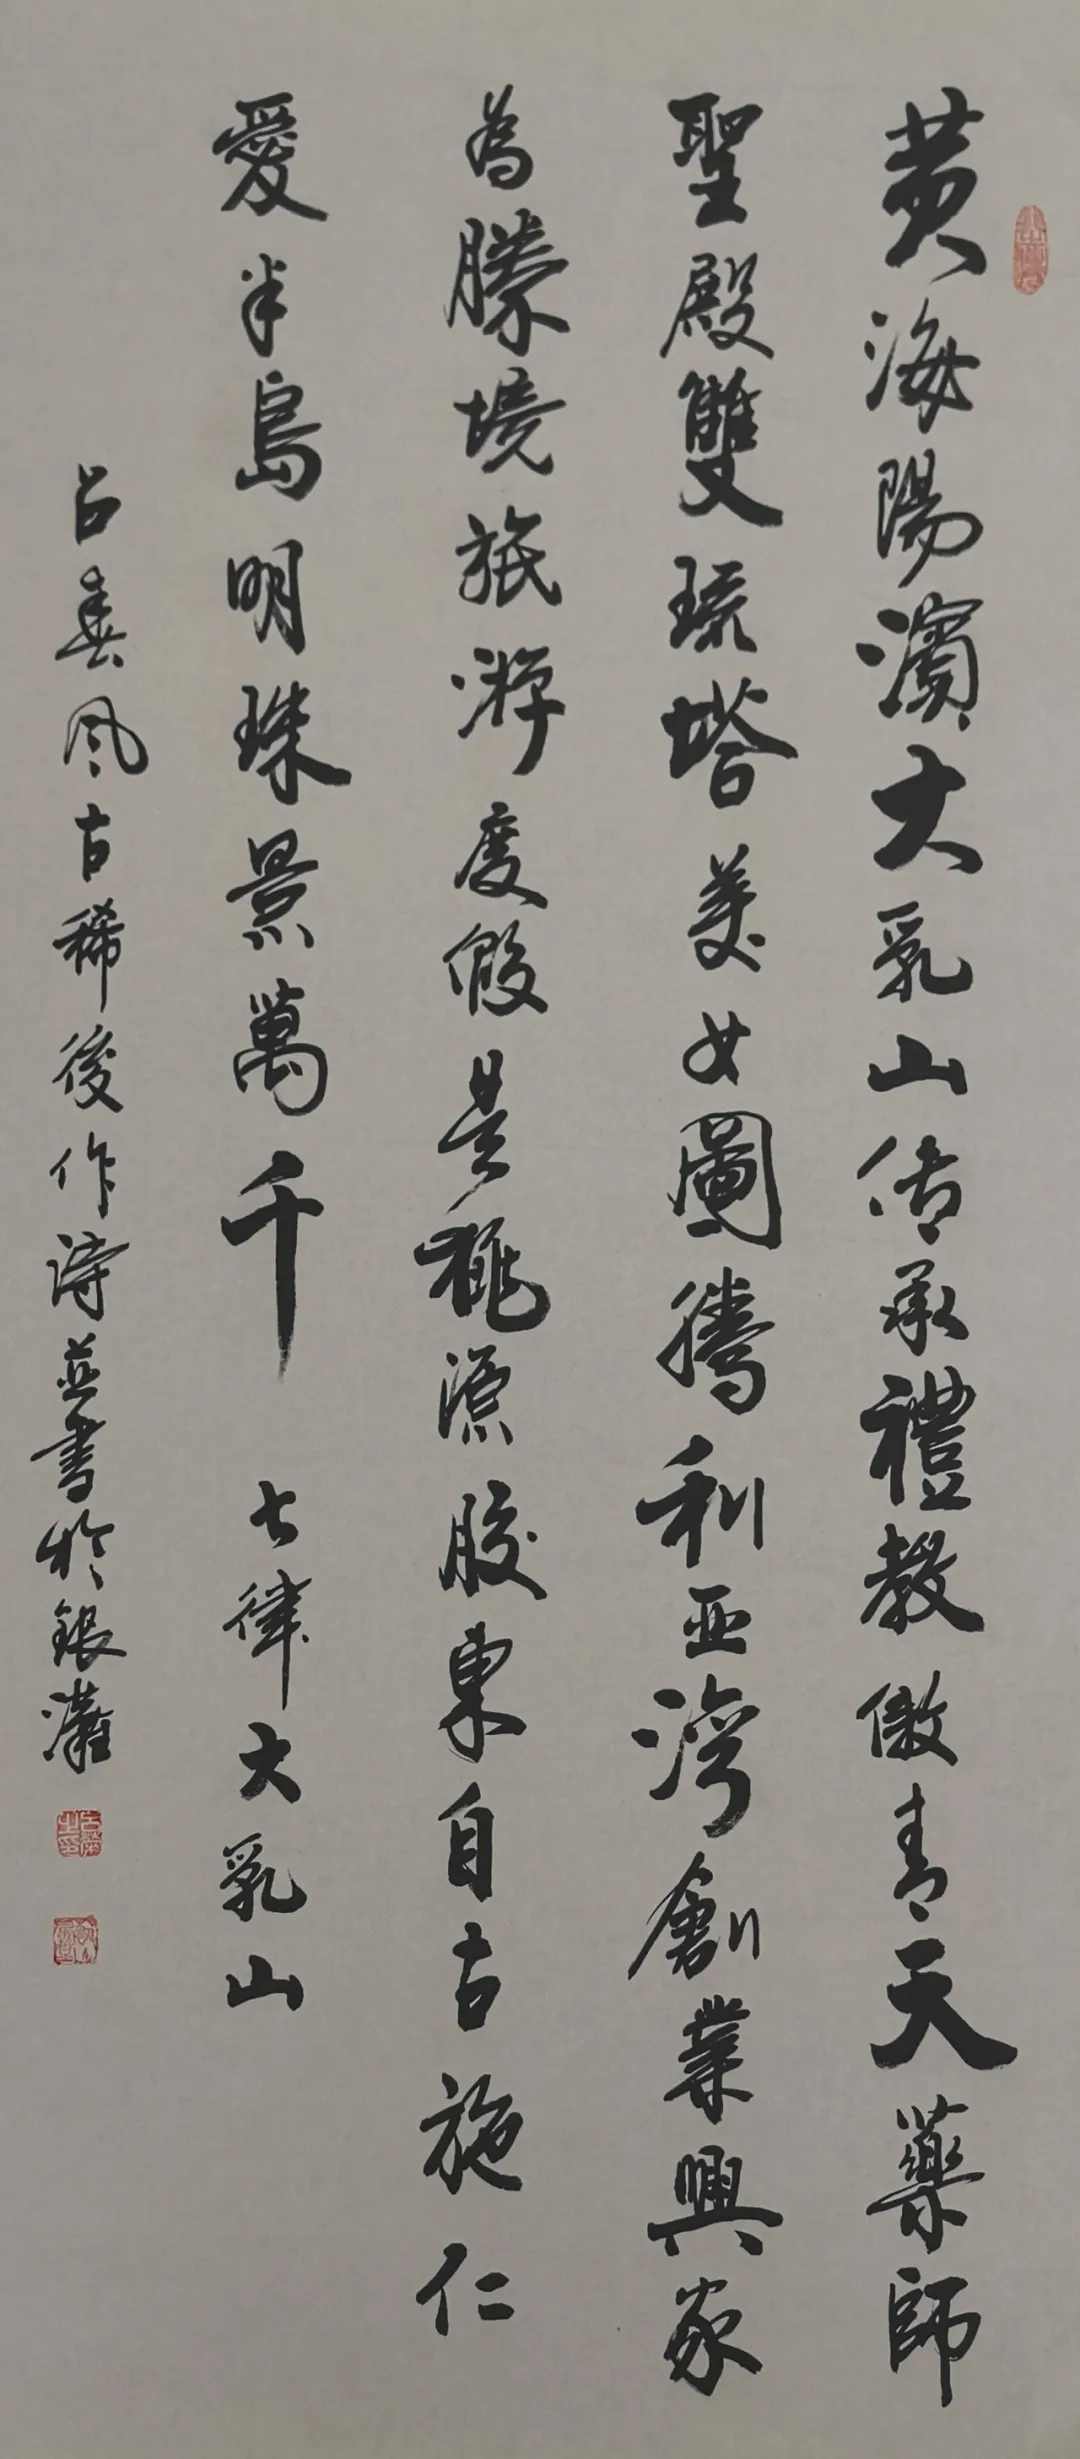 黄海陽濱大乳山传承禮教傲青天藥師
聖殿雙琉塔美女圖騰利亚灣創業興家
為勝境旅游度假是桃源膠東自古施仁
愛半島明珠景萬千 七律大乳山
吕春风古稀後作诗並書於銀灘